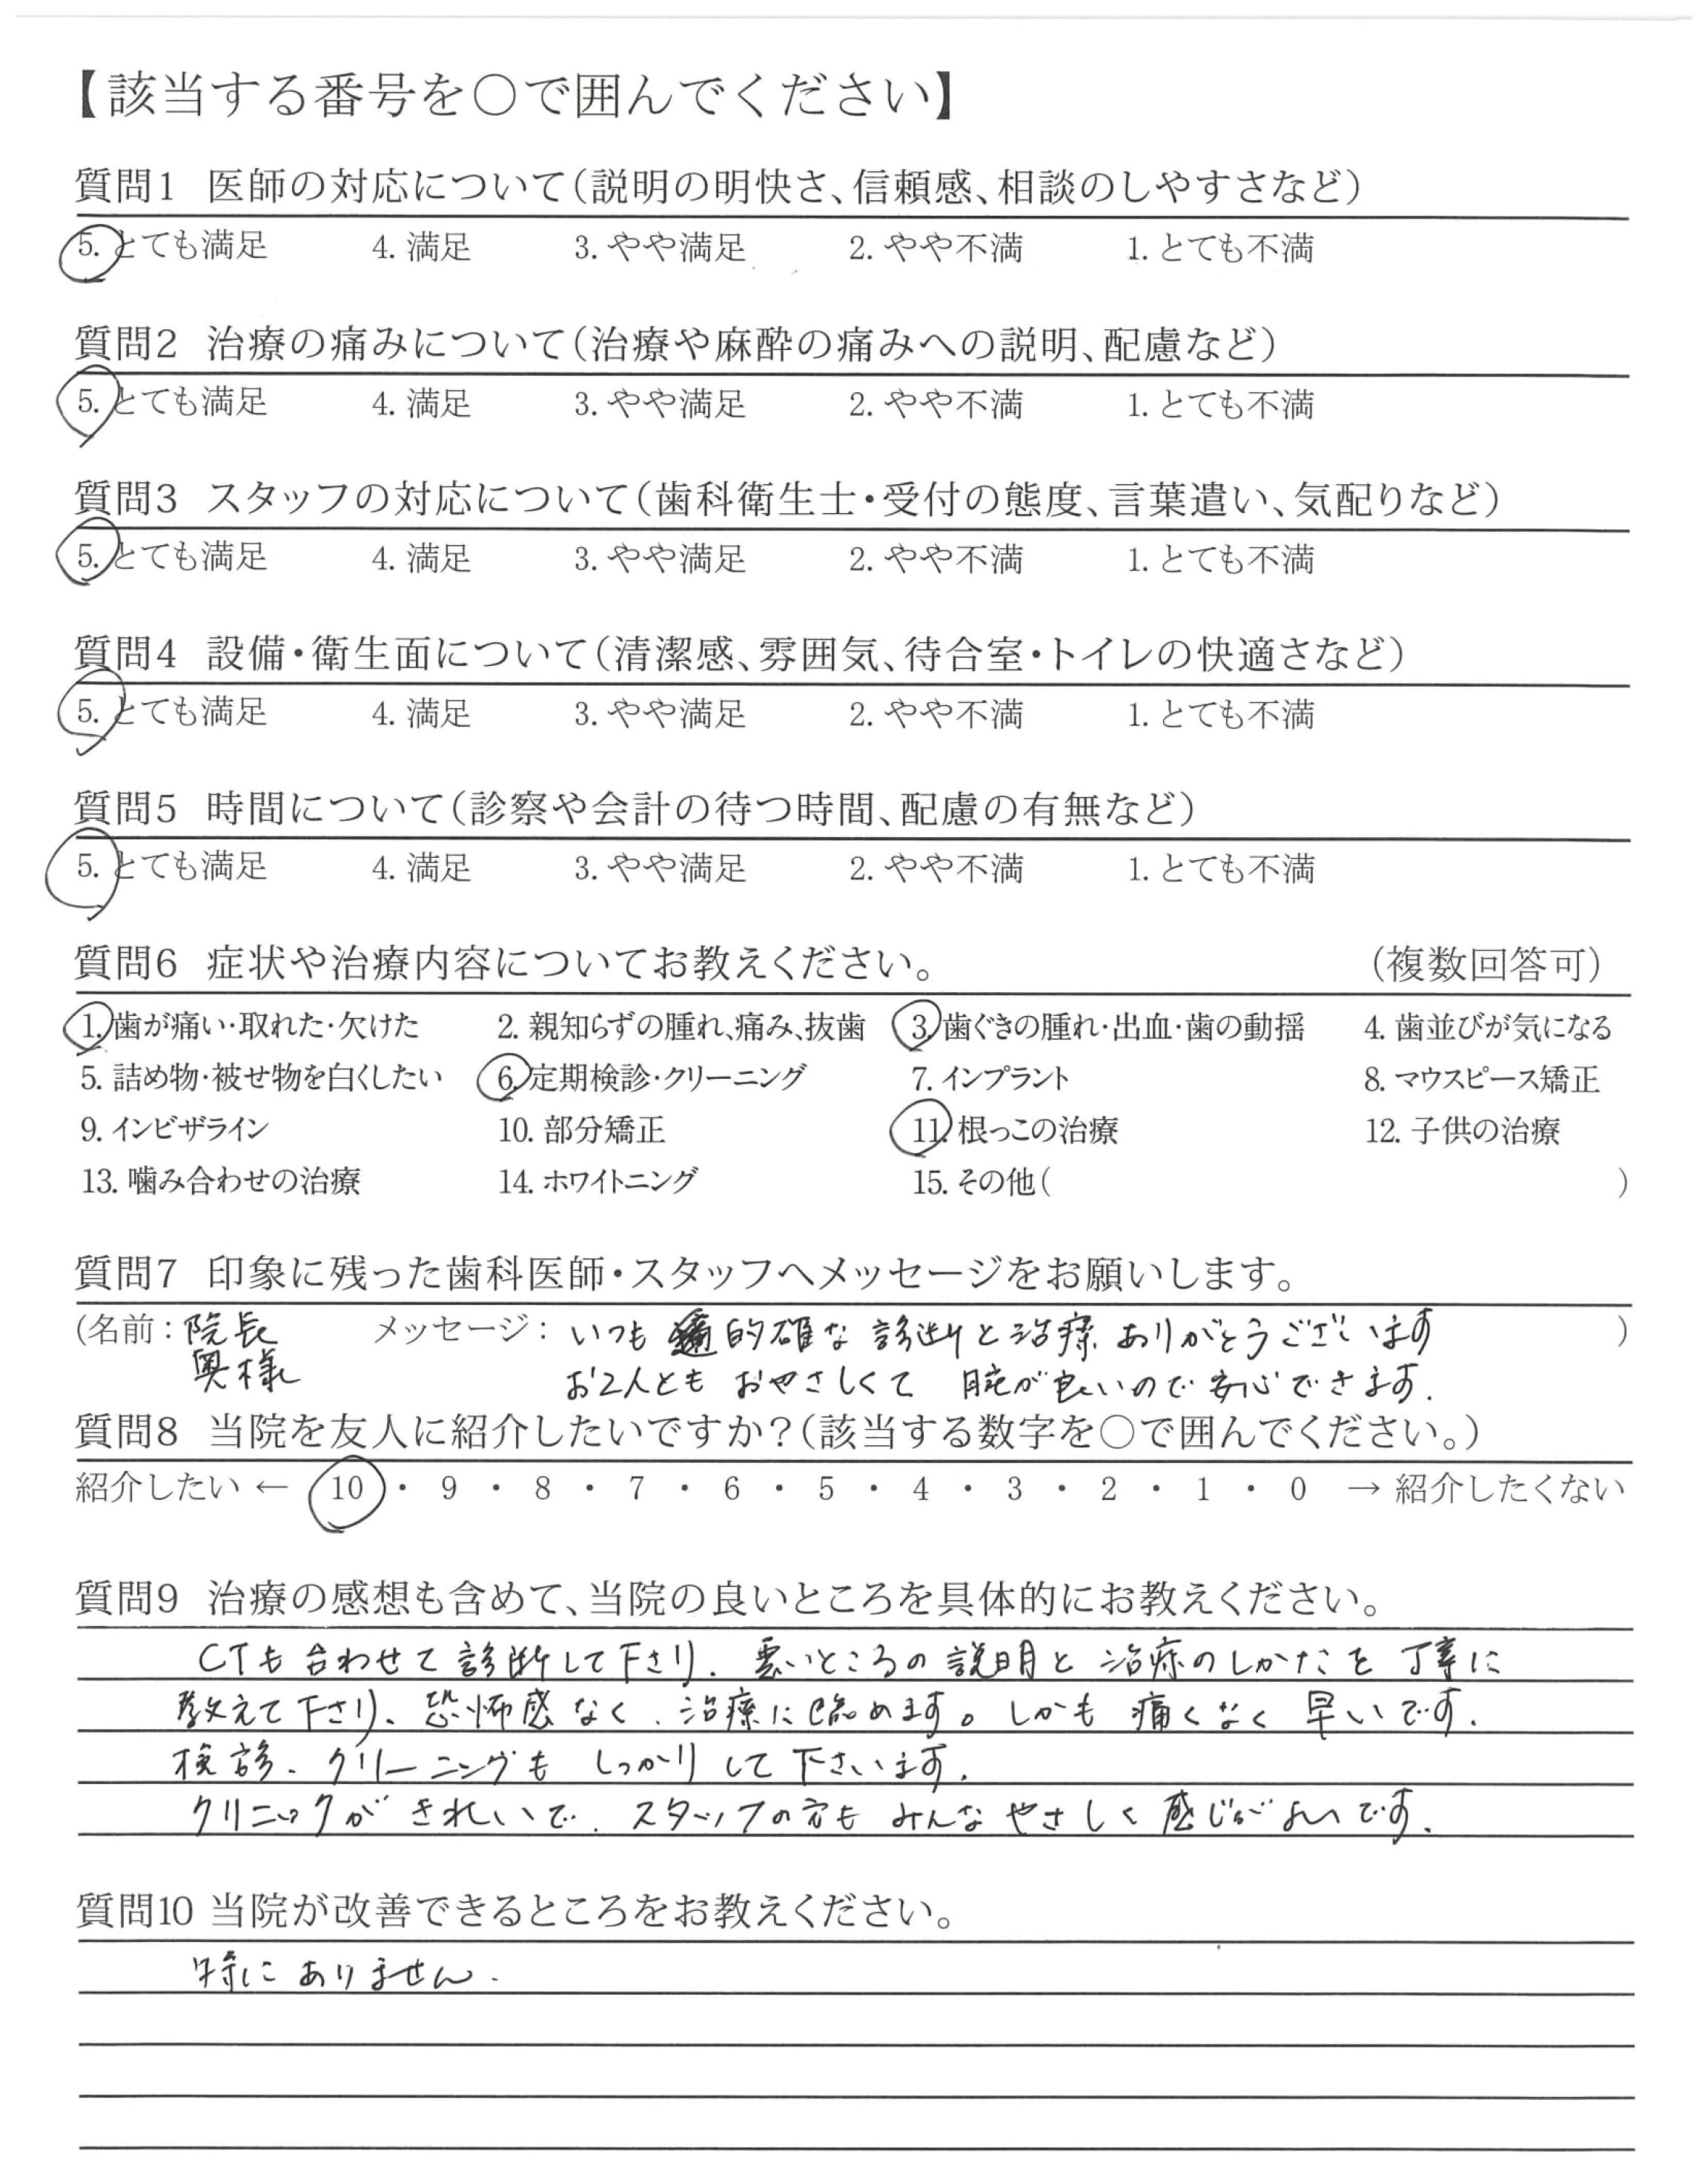 【該当する番号を〇で囲んでください】
質問1 医師の対応について(説明の明快さ、信頼感、相談のしやすさなど)
5. とても満足 4. 満足 3. やや満足 2. やや不満 1. とても不満
質問2 治療の痛みについて(治療や麻酔の痛みへの説明、配慮など)
5. とても満足 4. 満足 3. やや満足 2. やや不満 1. とても不満
質問3 スタッフの対応について(歯科衛生士・受付の態度、言葉遣い、気配りなど)
5. とても満足 4. 満足 3. やや満足 2. やや不満 1. とても不満
質問4 設備・衛生面について(清潔感、雰囲気、待合室・トイレの快適さなど)
5. とても満足 4. 満足 3. やや満足 2. やや不満 1. とても不満
質問5 時間について(診察や会計の待つ時間、配慮の有無など)
5. とても満足 4. 満足 3. やや満足 2. やや不満 1. とても不満
質問6 症状や治療内容についてお教えください。 (複数回答可)
1. 歯が痛い・取れた・欠けた 2. 親知らずの腫れ、痛み、抜歯 3. 歯ぐきの腫れ・出血・歯の動揺 4. 歯並びが気になる
5. 詰め物・被せ物を白くしたい 6. 定期検診・クリーニング 7. インプラント 8. マウスピース矯正
9. インビザライン 10. 部分矯正 11. 根っこの治療 12. 子供の治療
13. 噛み合わせの治療 14. ホワイトニング 15. その他( )
質問7 印象に残った歯科医師・スタッフへメッセージをお願いします。
(名前：院長 メッセージ：いつも 的確な診断と治療、ありがとうございます )
奥様 お2人とも おやさしくて 腕が良いので安心できます.
質問8 当院を友人に紹介したいですか?(該当する数字を〇で囲んでください。)
紹介したい ← 10 ・ 9 ・ 8 ・ 7 ・ 6 ・ 5 ・ 4 ・ 3 ・ 2 ・ 1 ・ 0 → 紹介したくない
質問9 治療の感想も含めて、当院の良いところを具体的にお教えください。
CTも合わせて診断して下さり、悪いところの説明と治療のしかたを丁寧に
教えて下さり、恐怖感なく、治療に臨めます。しかも 痛くなく 早いです.
検診、クリーニングも しっかりして下さいます.
クリニックが きれいで、スタッフの方も みんな やさしく 感じがよいです.
質問10 当院が改善できるところをお教えください。
特にありません.